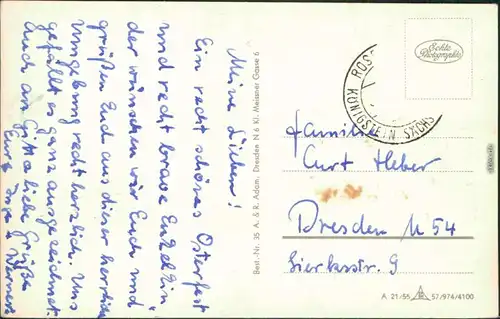 Meine Lieben!
Ein recht schönes Osterfest
und recht brave Enkel
der wünschen wir Euch und
grüßen Euch aus dieser herrlichen
Umgebung recht herzlich. Uns
gefällt es ganz ausgezeichnet.
Euch am liebe Grüße
Eure Inge u. Werner
Best.-Nr. 35 A. & R. Adam, Dresden N 6 Kl. Meissner Gasse 6
Echte
Photographie
KÖNIGSTEIN SÄCHS
Familie
Curt Heber
Dresden N 54
9
A 21/55 57/974/4100